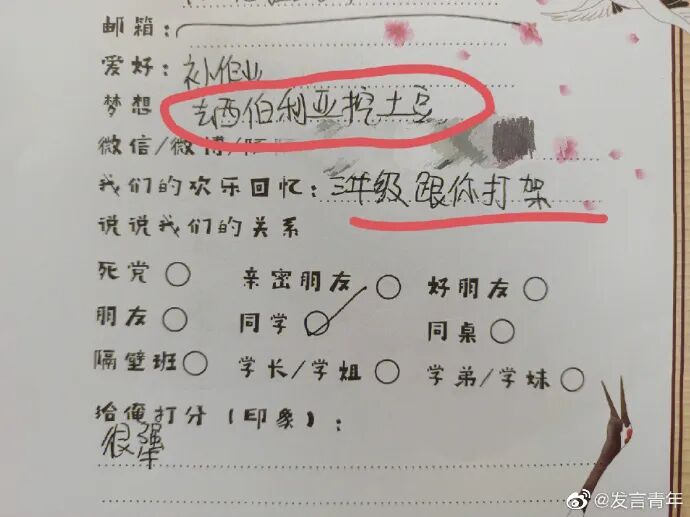 邮箱:
爱好:
梦想 去西伯利亚挖土豆
微信/微博/
我们的欢乐回忆: 三年级跟你打架
说说我们的关系
死党 亲密朋友 好朋友
朋友 同学 同桌
隔壁班 学长/学姐 学弟/学妹
给俺打分(印象):
很强
@发言青年